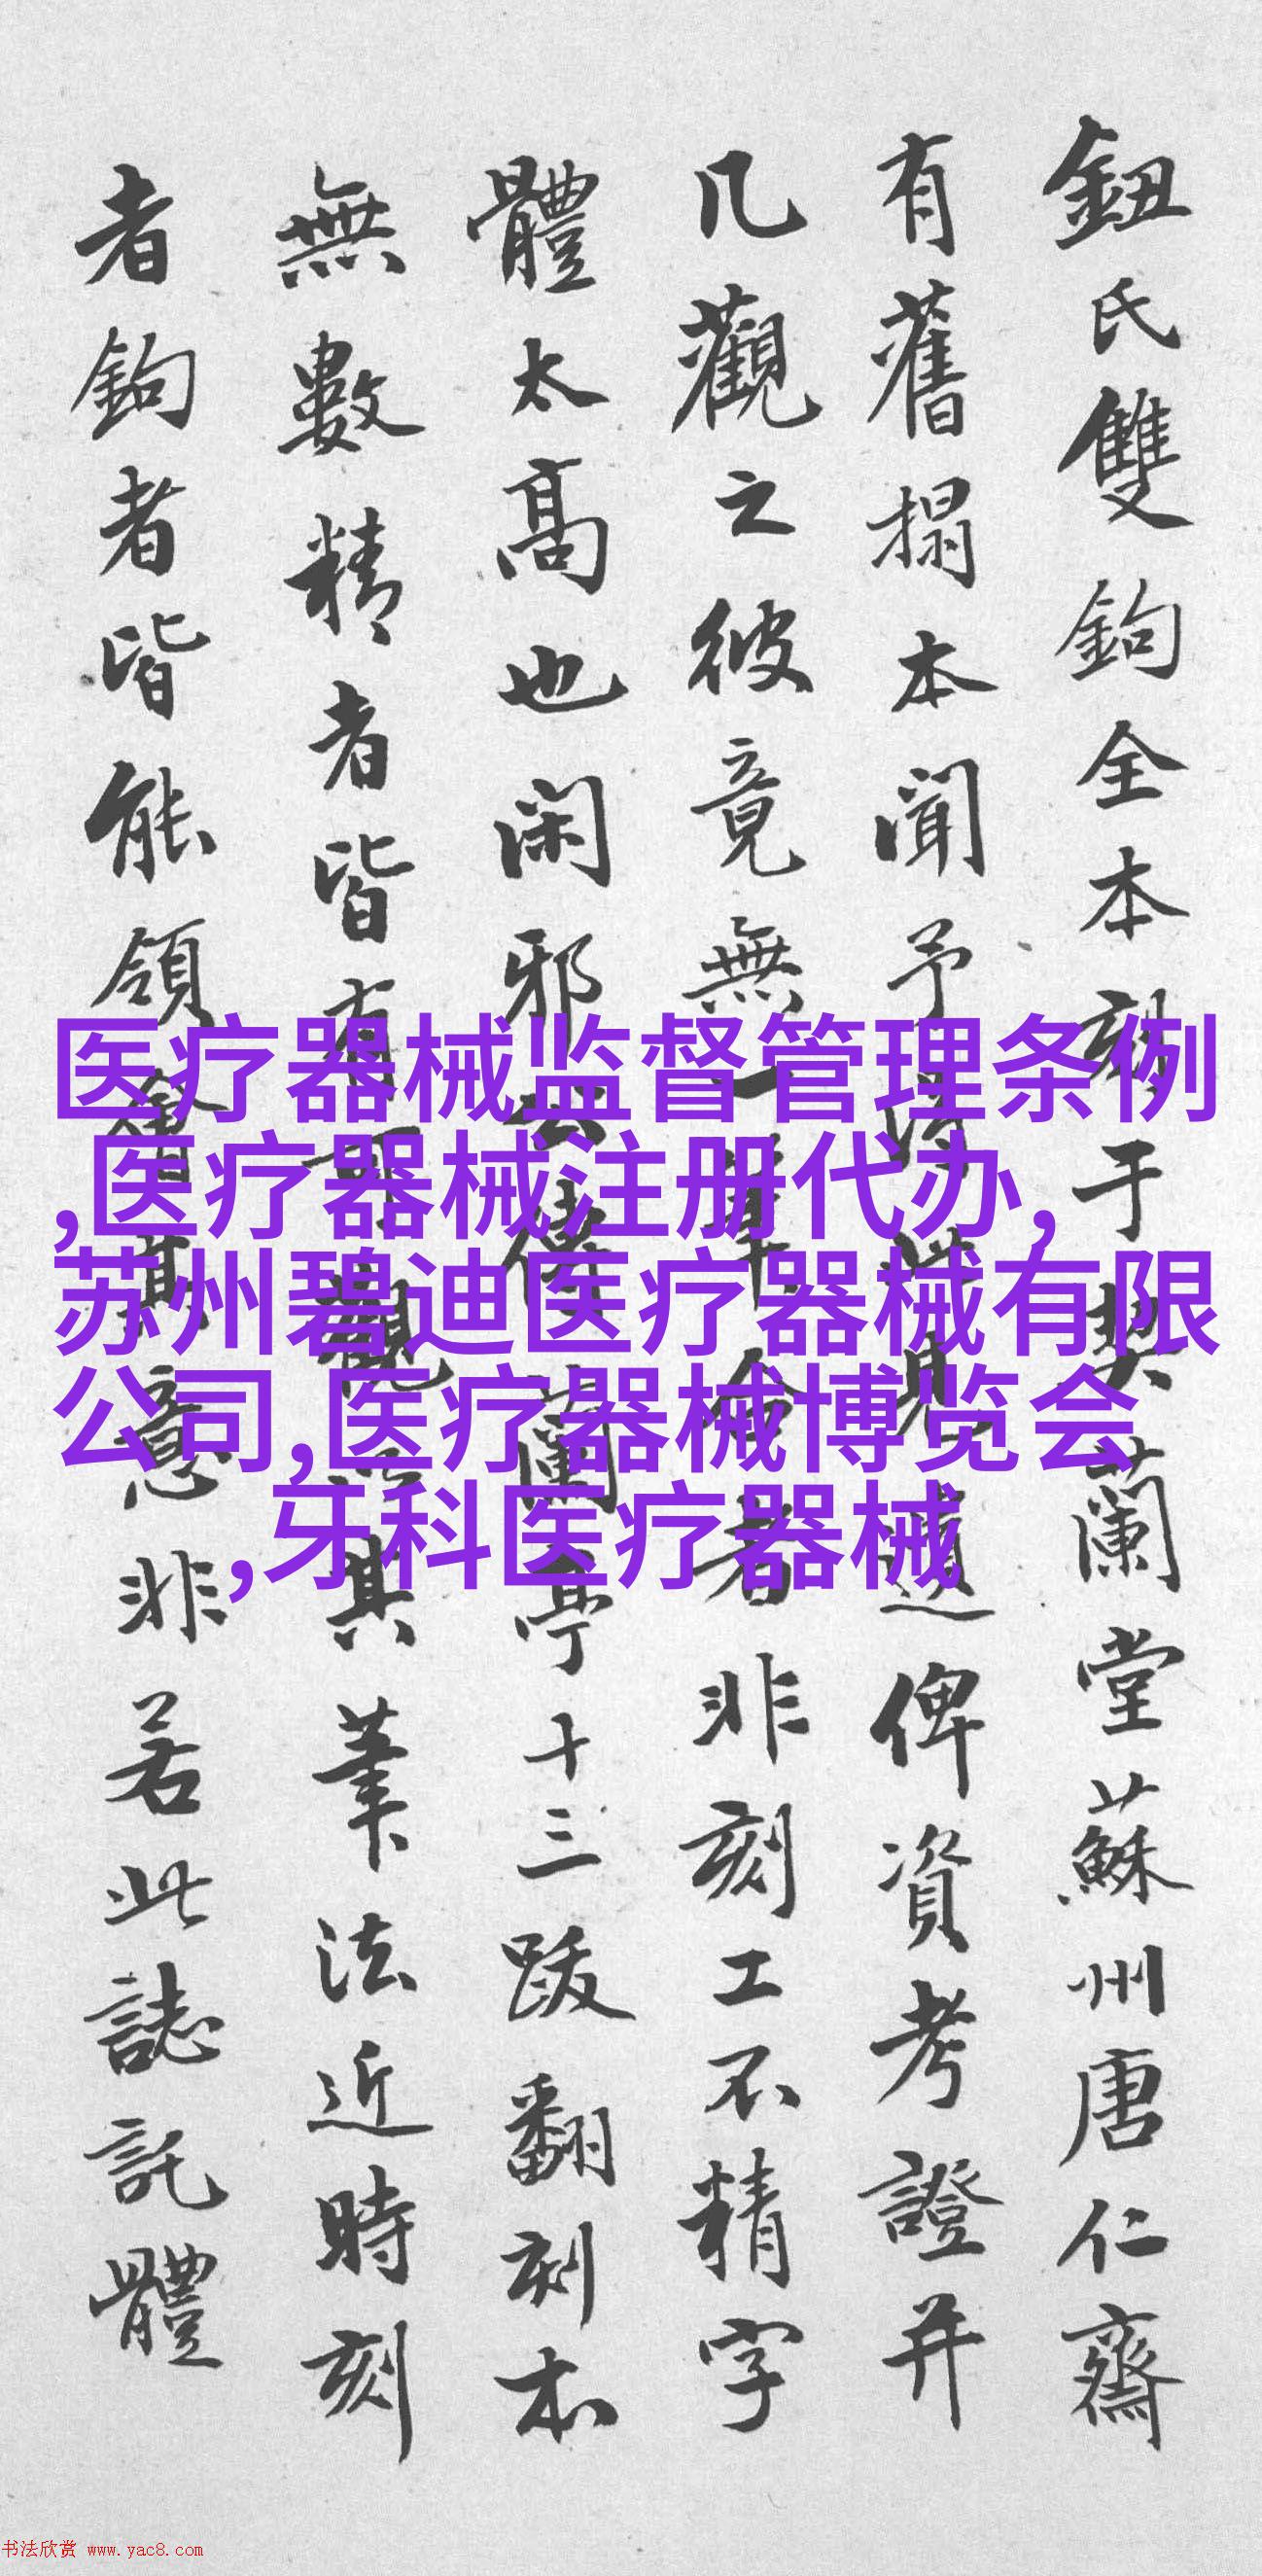 鈕氏雙鉤全本刻于契蘭堂蘇州唐仁齋
有舊搨本聞予俾資考證并
凡觀之彼竟無一者非刻工不精字
體太高也闲邪蘭亭十三跋翻刻本
無數精者皆有觀其筆法近時刻
者鉤者皆能領意非若此誌託體
医疗器械监督管理条例
,医疗器械注册代办,
苏州碧迪医疗器械有限
公司,医疗器械博览会
,牙科医疗器械
书法欣赏 www.yac8.com